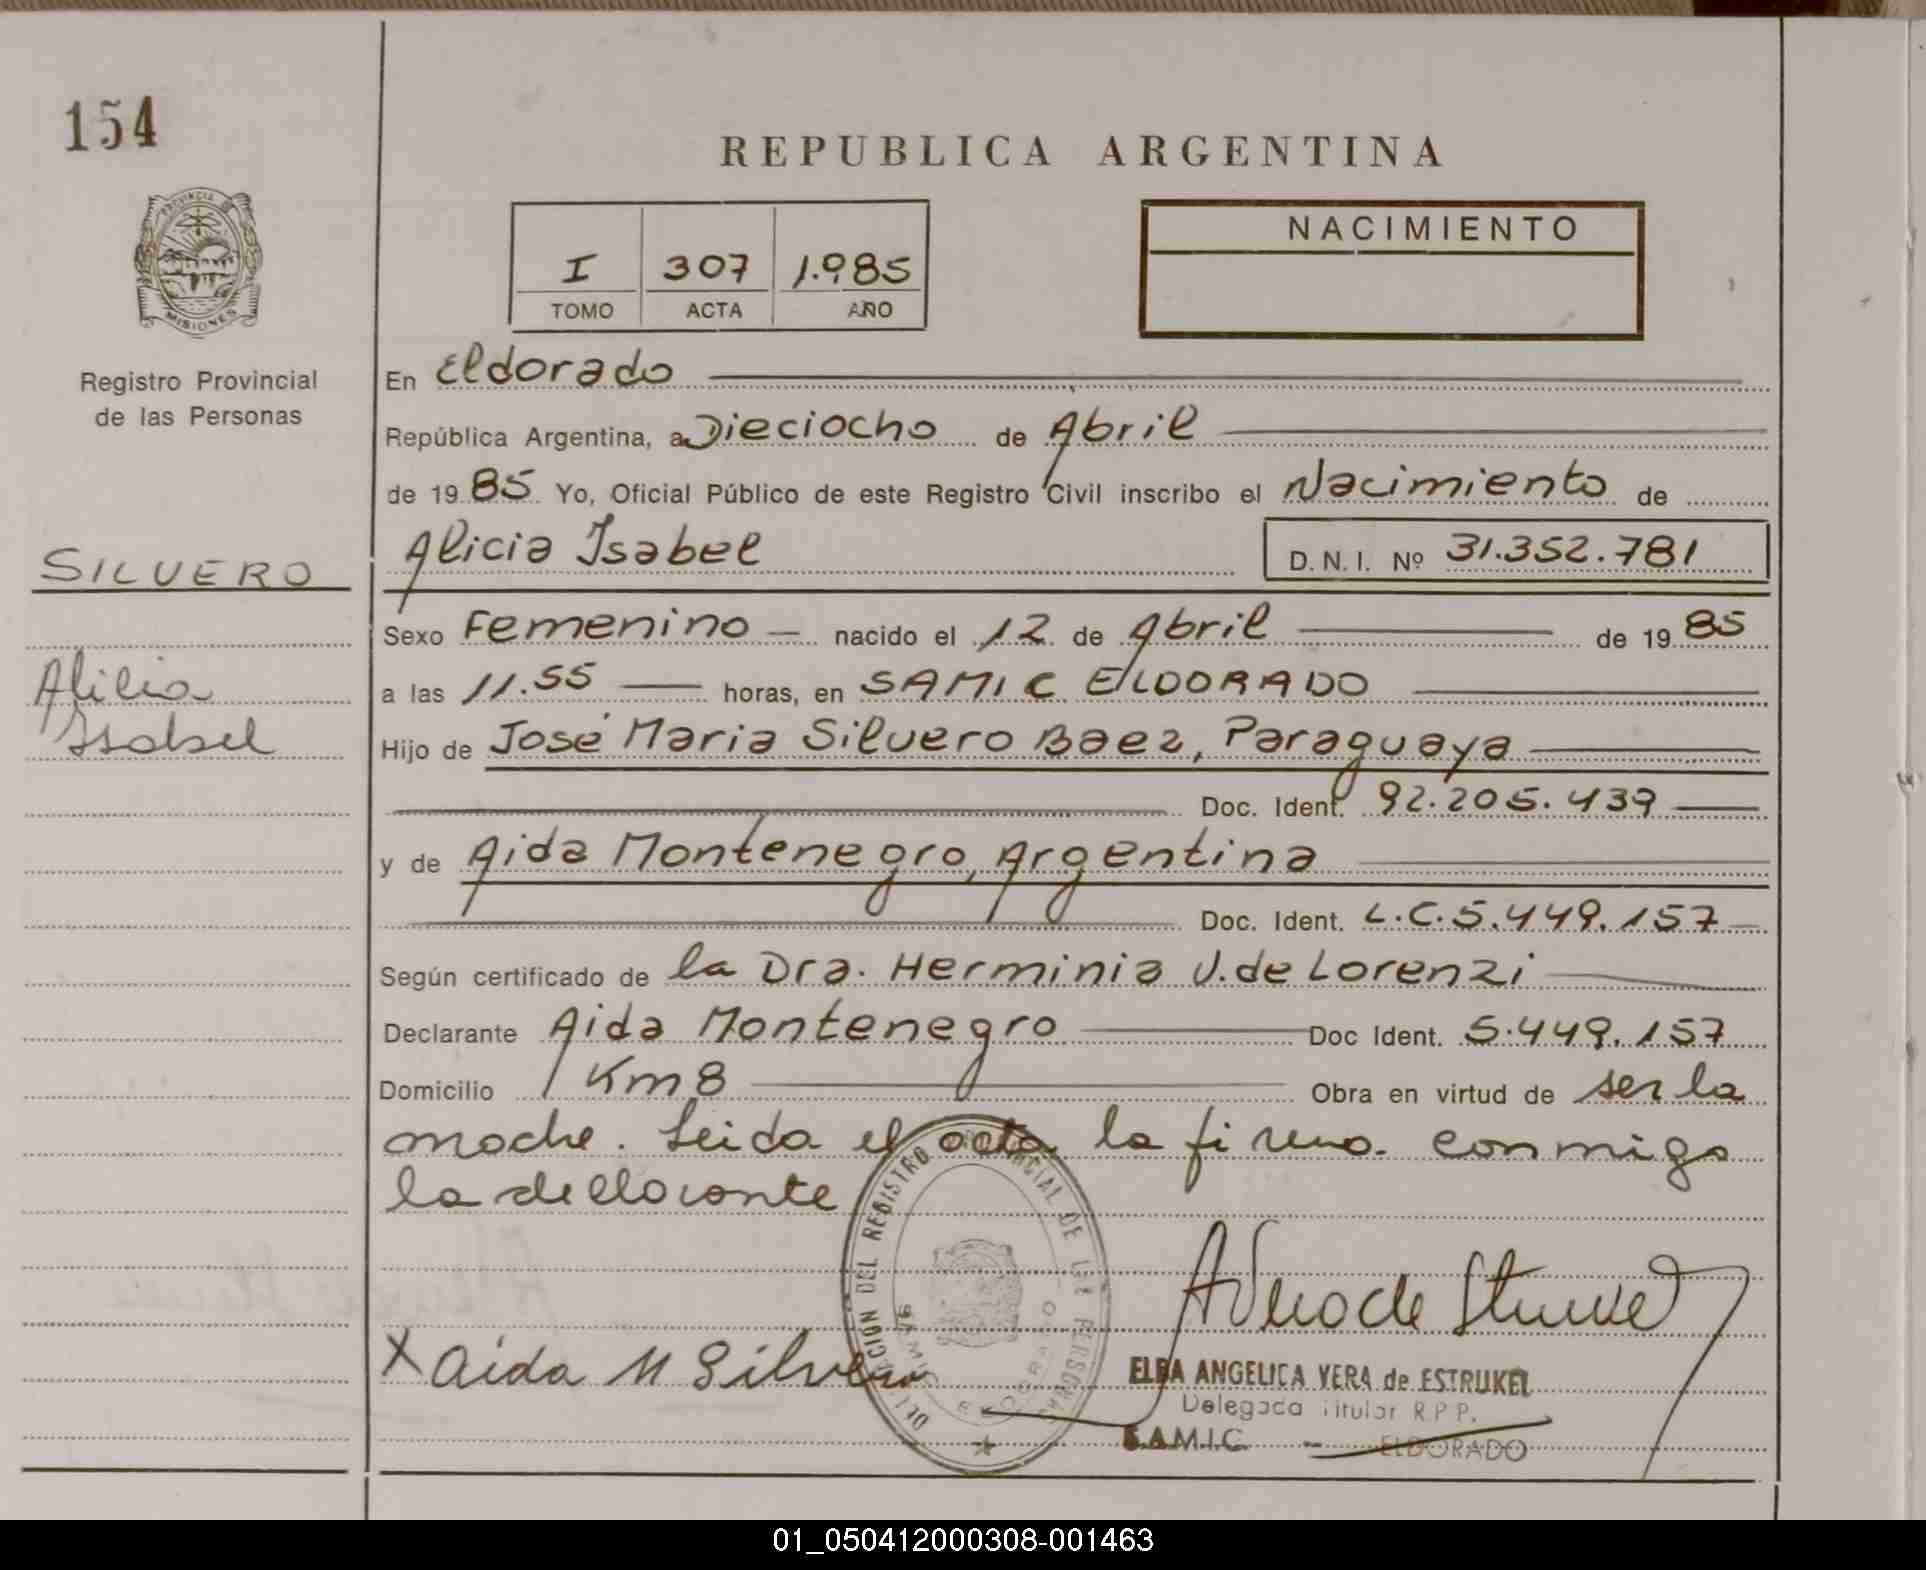 154
REPUBLICA ARGENTINA
PROVINCIA DE
MISIONES
Registro Provincial
de las Personas
I 307 1.985
TOMO ACTA AÑO
NACIMIENTO
En Eldorado
República Argentina, a Dieciocho de Abril
de 1985 Yo, Oficial Público de este Registro Civil inscribo el Nacimiento de
Alicia Isabel D.N.I. Nº 31.352.781
SILVERO
Alicia
Isabel
Sexo Femenino nacido el 12 de Abril de 1985
a las 11.55 horas, en SAMIC ELDORADO
Hijo de José Maria Silvero Baez, Paraguaya
Doc. Ident. 92.205.439
y de Aida Montenegro, Argentina
Doc. Ident. L.C.5.449.157
Según certificado de la Dra. Herminia V. de Lorenzi
Declarante Aida Montenegro Doc Ident. 5.449.157
Domicilio Km 8 Obra en virtud de ser la
madre. Leida el acta la firma conmigo
la declarante
DEL REGISTRO PROVINCIAL DE LAS PERSONAS
ELDORADO
X Aida M Silvero
ELBA ANGELICA VERA de ESTRUKEL
Delegada Titular R.P.P.
S.A.M.I.C. - ELDORADO
01_050412000308-001463